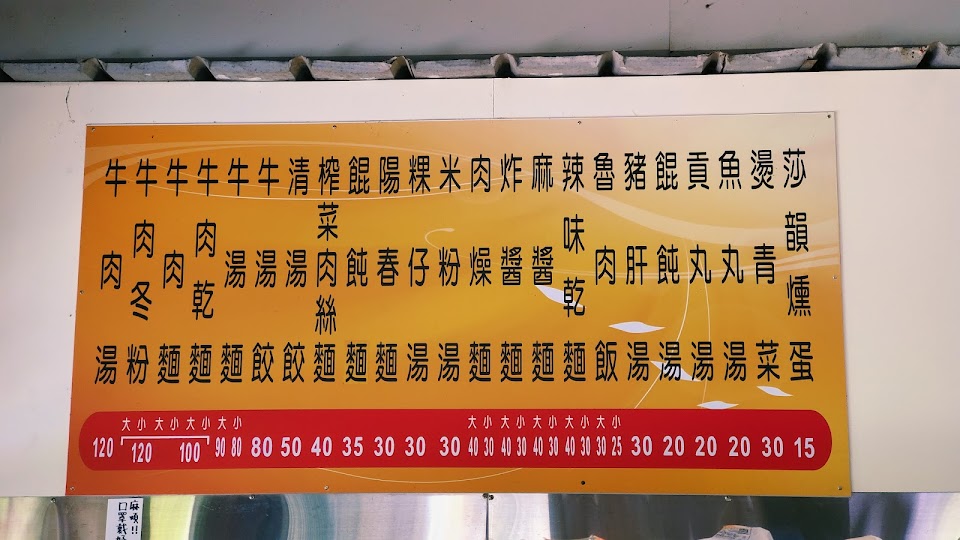 牛肉湯
牛肉冬粉
牛肉麵
牛肉乾麵
牛湯麵
牛湯餃
清湯餃
榨菜肉絲麵
餛飩麵
陽春麵
粿仔湯
米粉湯
肉燥麵
炸醬麵
麻醬麵
辣味乾麵
魯肉飯
豬肝湯
餛飩湯
貢丸湯
魚丸湯
燙青菜
莎韻燻蛋
大 小 大 小 大 小 大 小 大 小 大 小 大 小 大 小 大 小
120 120 100 90 80 80 50 40 35 30 30 30 40 30 40 30 40 30 40 30 30 25 30 20 20 20 30 15
麻煩!!
口罩戴